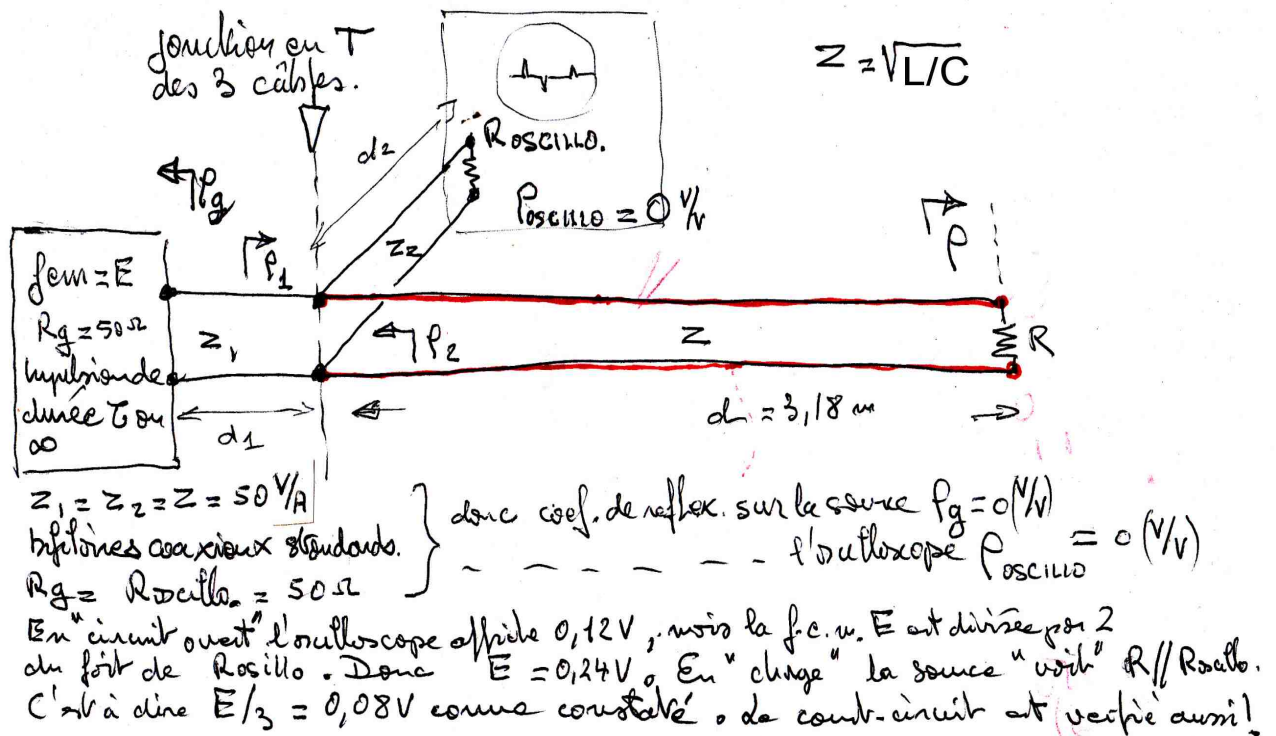 Jonction en T
des 3 câbles.
Z = √L/C
d2
ROSCILLO.
ρg
ρOSCILLO = 0 V/V
ρ1
Z2
ρ
fem = E
Rg = 50 Ω
Impulsion de
durée τ ou
∞
Z1
ρ2
Z
R
d1
d = 3,18 m
Z1 = Z2 = Z = 50 V/A
bifilaires coaxiaux standards.
Rg = Roscillo. = 50 Ω
donc coef. de reflex. sur la source ρg = 0 (V/V)
_ _ _ _ _ l'oscilloscope ρOSCILLO = 0 (V/V)
En "circuit ouvert" l'oscilloscope affiche 0,12V, mais la f.e.m. E est divisée par 2
du fait de Rosillo. Donc E = 0,24V. En "charge" la source "voit" R//Roscillo.
C'est à dire E/3 = 0,08V comme constaté. Le court-circuit est verifié aussi!